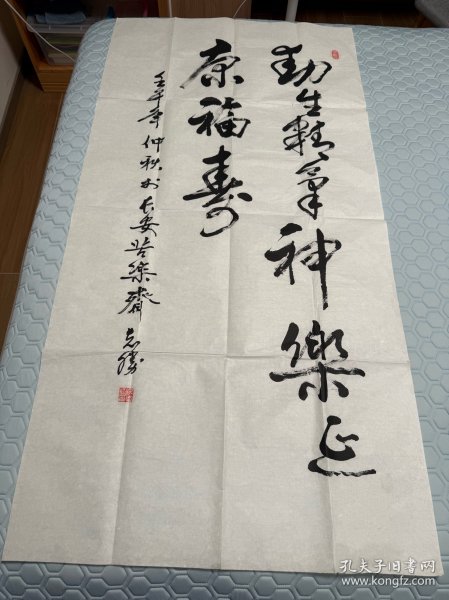 動生精氣神樂延
康福壽
壬午年仲秋於長安苦樂齋志勝
孔夫子旧书网
www.kongfz.com